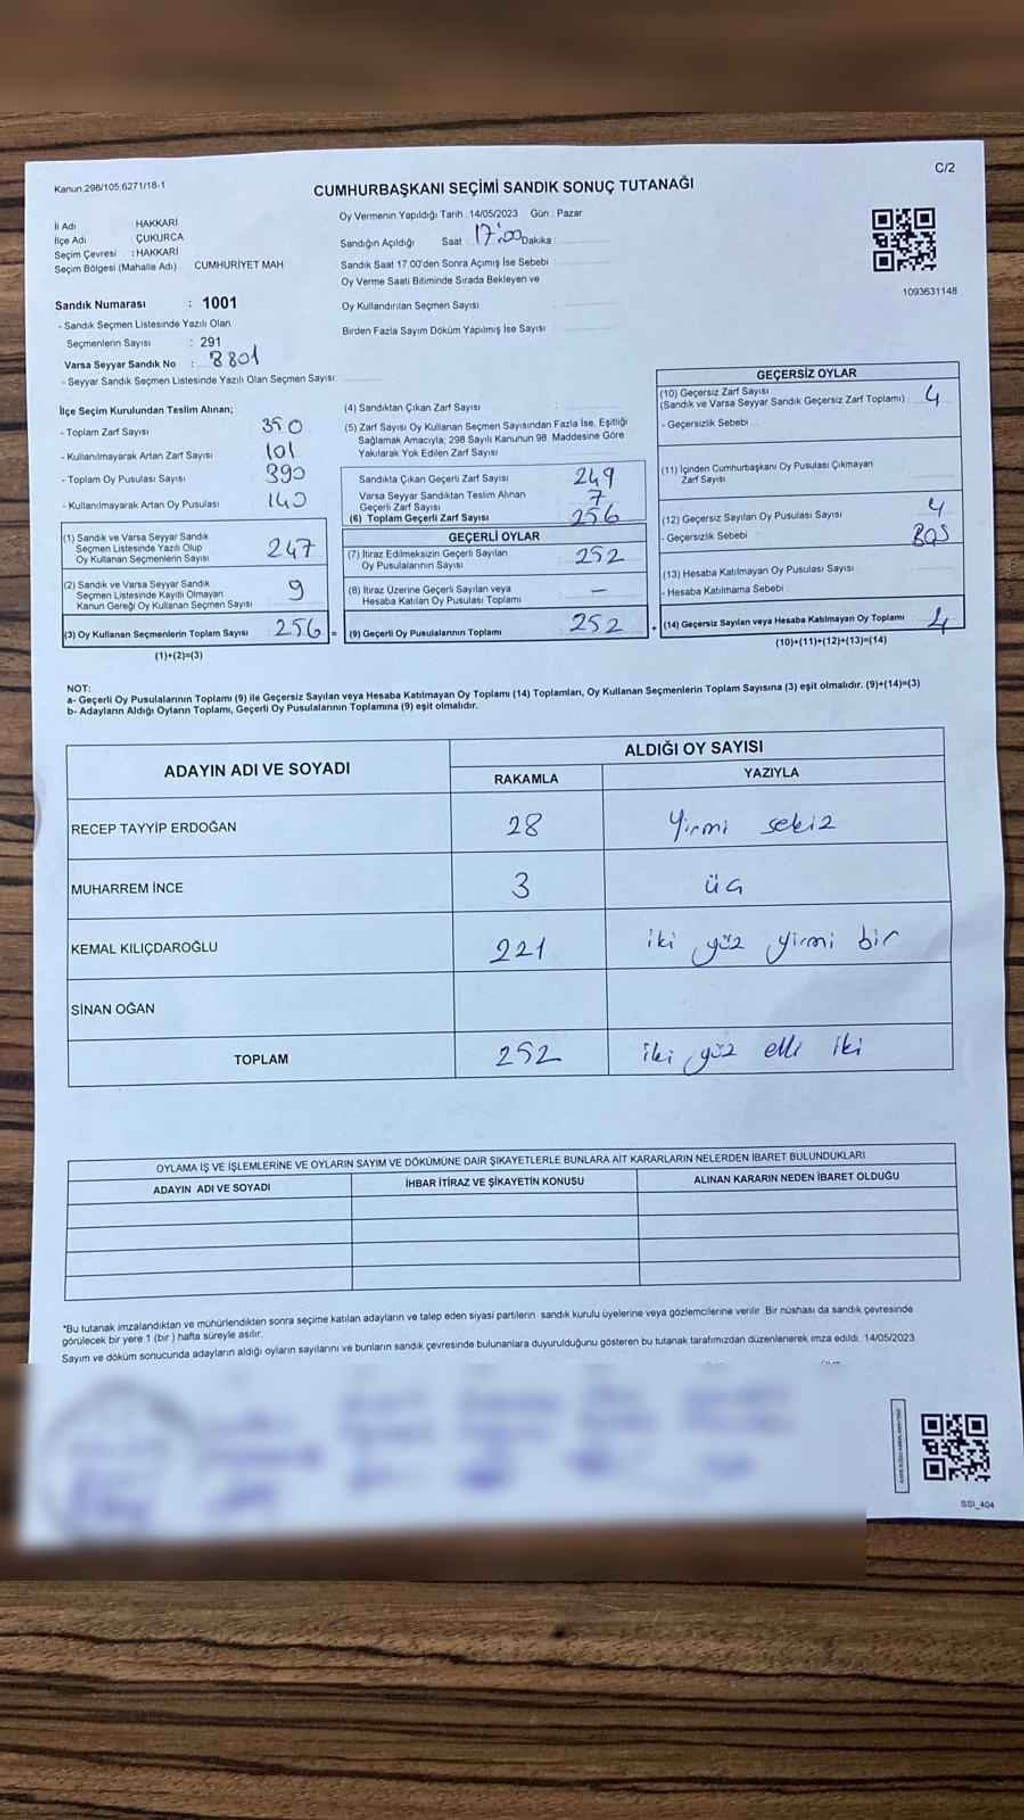 Kanun 298/105;6271/18-1
C/2
CUMHURBAŞKANI SEÇİMİ SANDIK SONUÇ TUTANAĞI
İl Adı HAKKARİ
İlçe Adı ÇUKURCA
Seçim Çevresi : HAKKARİ
Seçim Bölgesi (Mahalle Adı) CUMHURİYET MAH
Sandık Numarası : 1001
- Sandık Seçmen Listesinde Yazılı Olan
Seçmenlerin Sayısı : 291
Varsa Seyyar Sandık No : 3801
- Seyyar Sandık Seçmen Listesinde Yazılı Olan Seçmen Sayısı:
Oy Vermenin Yapıldığı Tarih : 14/05/2023 Gün : Pazar
Sandığın Açıldığı Saat 17:00 Dakika :
Sandık Saat 17.00'den Sonra Açımış İse Sebebi
Oy Verme Saati Bitiminde Sırada Bekleyen ve
Oy Kullandırılan Seçmen Sayısı
Birden Fazla Sayım Döküm Yapılmış İse Sayısı
1093631148
İlçe Seçim Kurulundan Teslim Alınan;
- Toplam Zarf Sayısı 350
- Kullanılmayarak Artan Zarf Sayısı 101
- Toplam Oy Pusulası Sayısı 390
- Kullanılmayarak Artan Oy Pusulası 140
(1) Sandık ve Varsa Seyyar Sandık
Seçmen Listesinde Yazılı Olup
Oy Kullanan Seçmenlerin Sayısı 247
(2) Sandık ve Varsa Seyyar Sandık
Seçmen Listesinde Kayıtlı Olmayan
Kanun Gereği Oy Kullanan Seçmen Sayısı 9
(3) Oy Kullanan Seçmenlerin Toplam Sayısı 256 =
(1)+(2)=(3)
(4) Sandıktan Çıkan Zarf Sayısı
(5) Zarf Sayısı Oy Kullanan Seçmen Sayısından Fazla İse, Eşitliği
Sağlamak Amacıyla; 298 Sayılı Kanunun 98. Maddesine Göre
Yakılarak Yok Edilen Zarf Sayısı
Sandıkta Çıkan Geçerli Zarf Sayısı 249
Varsa Seyyar Sandıktan Teslim Alınan
Geçerli Zarf Sayısı 7
(6) Toplam Geçerli Zarf Sayısı 256
GEÇERLİ OYLAR
(7) İtiraz Edilmeksizin Geçerli Sayılan
Oy Pusulalarının Sayısı 252
(8) İtiraz Üzerine Geçerli Sayılan veya
Hesaba Katılan Oy Pusulası Toplamı —
(9) Geçerli Oy Pusulalarının Toplamı 252 +
GEÇERSİZ OYLAR
(10) Geçersiz Zarf Sayısı
(Sandık ve Varsa Seyyar Sandık Geçersiz Zarf Toplamı) 4
- Geçersizlik Sebebi
(11) İçinden Cumhurbaşkanı Oy Pusulası Çıkmayan
Zarf Sayısı
(12) Geçersiz Sayılan Oy Pusulası Sayısı 4
- Geçersizlik Sebebi BOŞ
(13) Hesaba Katılmayan Oy Pusulası Sayısı
- Hesaba Katılmama Sebebi
(14) Geçersiz Sayılan veya Hesaba Katılmayan Oy Toplamı 4
(10)+(11)+(12)+(13)=(14)
NOT:
a- Geçerli Oy Pusulalarının Toplamı (9) ile Geçersiz Sayılan veya Hesaba Katılmayan Oy Toplamı (14) Toplamları, Oy Kullanan Seçmenlerin Toplam Sayısına (3) eşit olmalıdır. (9)+(14)=(3)
b- Adayların Aldığı Oyların Toplamı, Geçerli Oy Pusulalarının Toplamına (9) eşit olmalıdır.
ADAYIN ADI VE SOYADI
ALDIĞI OY SAYISI
RAKAMLA YAZIYLA
RECEP TAYYİP ERDOĞAN 28 Yirmi sekiz
MUHARREM İNCE 3 üç
KEMAL KILIÇDAROĞLU 221 iki yüz yirmi bir
SİNAN OĞAN
TOPLAM 252 iki yüz elli iki
OYLAMA İŞ VE İŞLEMLERİNE VE OYLARIN SAYIM VE DÖKÜMÜNE DAİR ŞİKAYETLERLE BUNLARA AİT KARARLARIN NELERDEN İBARET BULUNDUKLARI
ADAYIN ADI VE SOYADI İHBAR İTİRAZ VE ŞİKAYETİN KONUSU ALINAN KARARIN NEDEN İBARET OLDUĞU
*Bu tutanak imzalandıktan ve mühürlendikten sonra seçime katılan adayların ve talep eden siyasi partilerin sandık kurulu üyelerine veya gözlemcilerine verilir. Bir nüshası da sandık çevresinde
görülecek bir yere 1 (bir) hafta süreyle asılır.
Sayım ve döküm sonucunda adayların aldığı oyların sayılarını ve bunların sandık çevresinde bulunanlara duyurulduğunu gösteren bu tutanak tarafımızdan düzenlenerek imza edildi. 14/05/2023
SSI_404